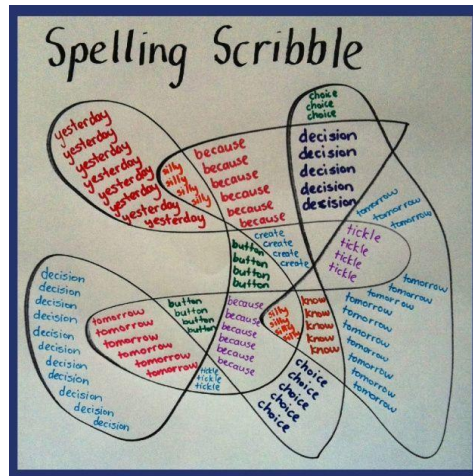 Spelling Scribble
yesterday
yesterday
yesterday
yesterday
yesterday
yesterday
yesterday
yesterday
silly
silly
silly
silly
because
because
because
because
because
because
choice
choice
choice
decision
decision
decision
decision
decision
tomorrow
tomorrow
tomorrow
create
create
create
create
button
button
button
button
tickle
tickle
tickle
tickle
decision
decision
decision
decision
decision
decision
decision
decision
decision
decision
tomorrow
tomorrow
tomorrow
tomorrow
tomorrow
button
button
button
button
tickle
tickle
tickle
because
because
because
because
because
because
silly
silly
silly
silly
know
know
know
know
know
choice
choice
choice
choice
choice
tomorrow
tomorrow
tomorrow
tomorrow
tomorrow
tomorrow
tomorrow
tomorrow
tomorrow
tomorrow
tomorrow